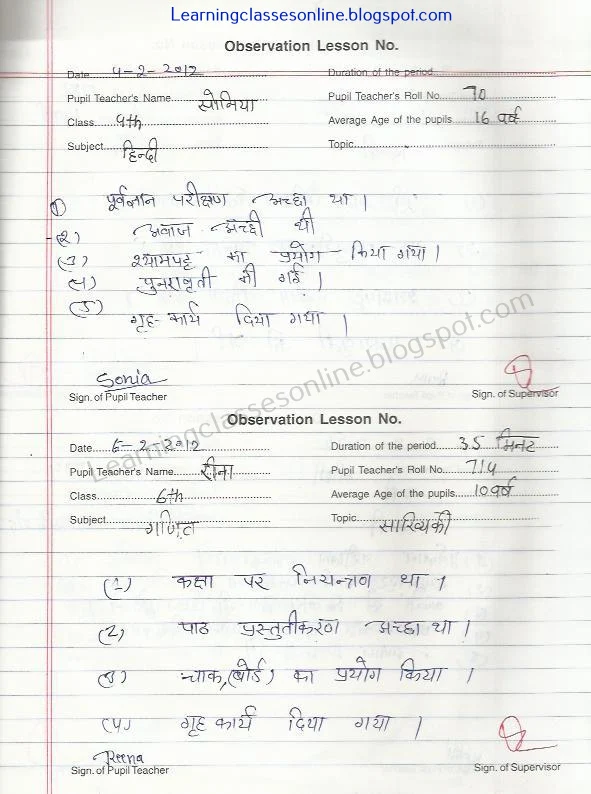 Learningclassesonline.blogspot.com
Observation Lesson No.
Date 4-2-2012 Duration of the period
Pupil Teacher's Name सोनिया Pupil Teacher's Roll No. 70
Class 9th Average Age of the pupils 16 वर्ष
Subject हिन्दी Topic
① पूर्वज्ञान परीक्षण अच्छा था ।
(२) अवाज अच्छी थी
(३) श्यामपट्ट का प्रयोग किया गया ।
(४) पुनरावृती की गई ।
(5)
गृह-कार्य दिया गया ।
Sonia
Sign. of Pupil Teacher Sign. of Supervisor
Learningclassesonline.blogspot.com
Observation Lesson No.
Date 6-2-2012 Duration of the period 35 मिनट
Pupil Teacher's Name रीना Pupil Teacher's Roll No. 714
Class 6th Average Age of the pupils 10 वर्ष
Subject गणित Topic सांख्यिकी
(1) कक्षा पर नियन्त्रण था ।
(2) पाठ प्रस्तुतीकरण अच्छा था ।
(3) चाक,(बोर्ड) का प्रयोग किया ।
(4) गृह कार्य दिया गया ।
Reena
Sign. of Pupil Teacher Sign. of Supervisor